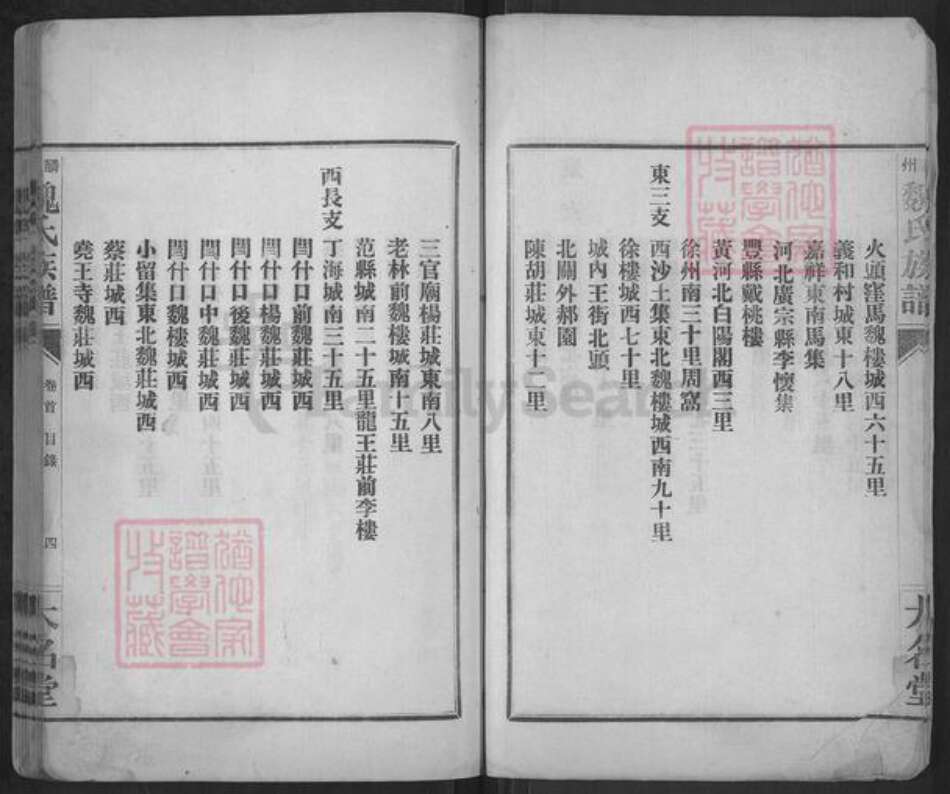 州魏氏族譜
大名堂
火頭窪馬魏樓城西六十五里
義和村城東十八里
嘉祥東南馬集
河北廣宗縣李懷集
豐縣戴桃樓
黃河北白陽閣西三里
徐州南三十里周窩
東三支 西沙土集東北魏樓城西南九十里
徐樓城西七十里
城內王街北頭
北關外郝園
陳胡莊城東十二里
三官廟楊莊城東南八里
老林前魏樓城南十五里
范縣城南二十五里龍王莊前李樓
西長支 丁海城南三十五里
閆什口前魏莊城西
閆什口楊魏莊城西
閆什口後魏莊城西
閆什口中魏莊城西
閆什口魏樓城西
小留集東北魏莊城西
蔡莊城西
堯王寺魏莊城西
麟魏氏族譜
卷首 目錄 四
大名堂
猶他家譜學會收藏
猶他家譜學會收藏
FamilySearch